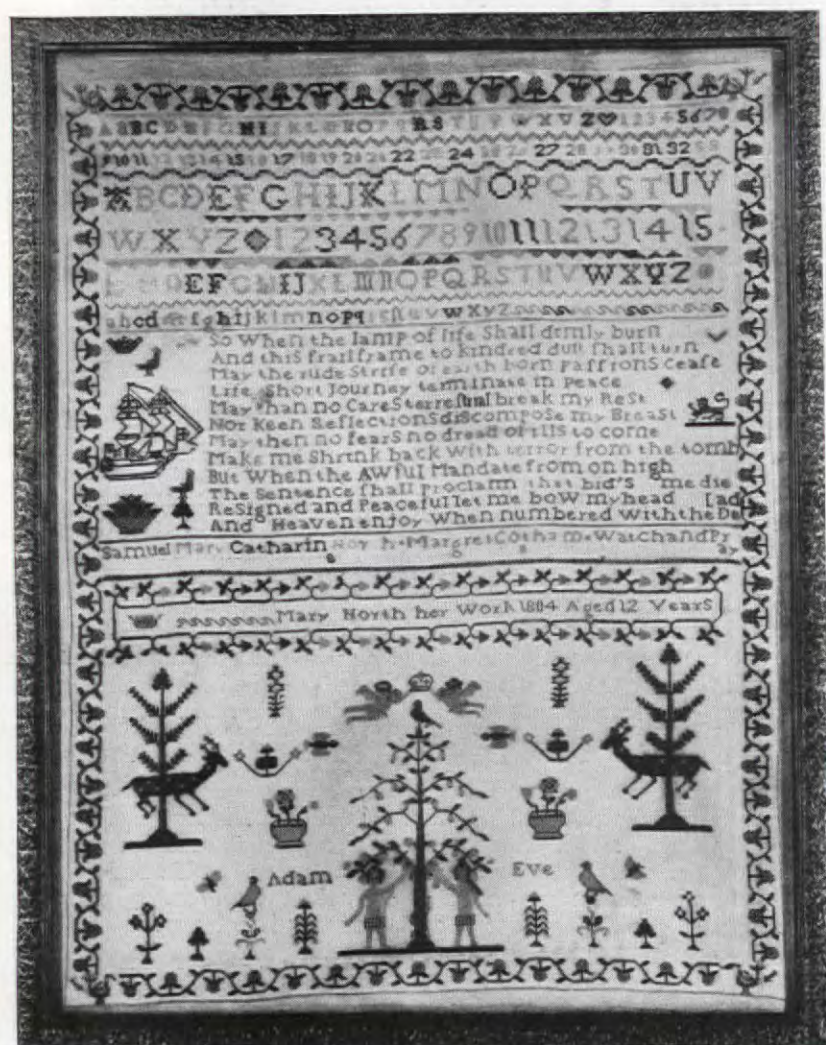 A B C D E F G H I J K L M N O P Q R S T U V W X Y Z 1 2 3 4 5 6 7 8
9 10 11 12 13 14 15 16 17 18 19 20 21 22 23 24 25 26 27 28 29 30 31 32 33
A B C D E F G H I J K L M N O P Q R S T U V
W X Y Z 1 2 3 4 5 6 7 8 9 10 11 12 13 14 15
E F G H I J K L M N O P Q R S T U V W X Y Z
a b c d e f g h i j k l m n o p q r s ſ t u v w x y z
So When the lamp of life Shall dimly burn
And thiS frail frame to kindred duſt ſhall turn
May the rude Strife of earth born paſſronS ceaſe
Life Short Journey terminate in peace
May than no CareS terreſtrial break my ReSt
Nor Keen ReflectionS diScompoSe my BreaSt
May then no fearS no dread of illS to come
Make me Shrink back With terror from the tomb
But When the AWful Mandate from on high
The Sentence ſhall proclaim that bid'S me die
ReSigned and Peaceful let me boW my head [ad
And Heaven enjoy When numbered With the De
Samuel Mary Catharin Margret Cotham Watch and Pr
ay
Mary North her Work 1804 Aged 12 YearS
Adam
Eve